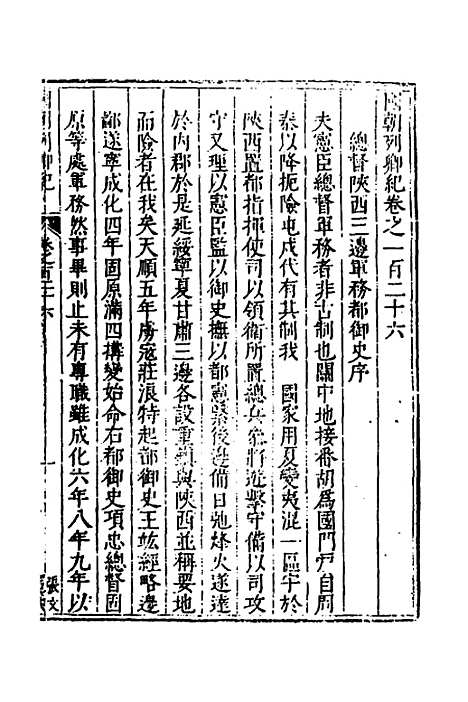 國朝列卿紀卷之一百二十六
總督陝西三邊軍務都御史序
夫憲臣總督軍務者非古制也關中地接番胡為國門戶自周
秦以降扼險屯戍代有其制我 國家用夏變夷混一區宇於
陝西置都指揮使司以領衛所置總兵參將遊擊守備以司攻
守又理以憲臣監以御史撫以都憲繄後邊備日弛烽火遂達
於內郡於是延綏寧夏甘肅三邊各設重鎮與陝西並稱要地
而險者在我矣天順五年虜寇莊浪特起都御史王竑經略邊
鄙遂寧成化四年固原滿四搆變始命右都御史項忠總督固
原等處軍務然事畢則止未有專職雖成化六年八年九年以
國朝列卿紀
卷之百二十六
一
張文